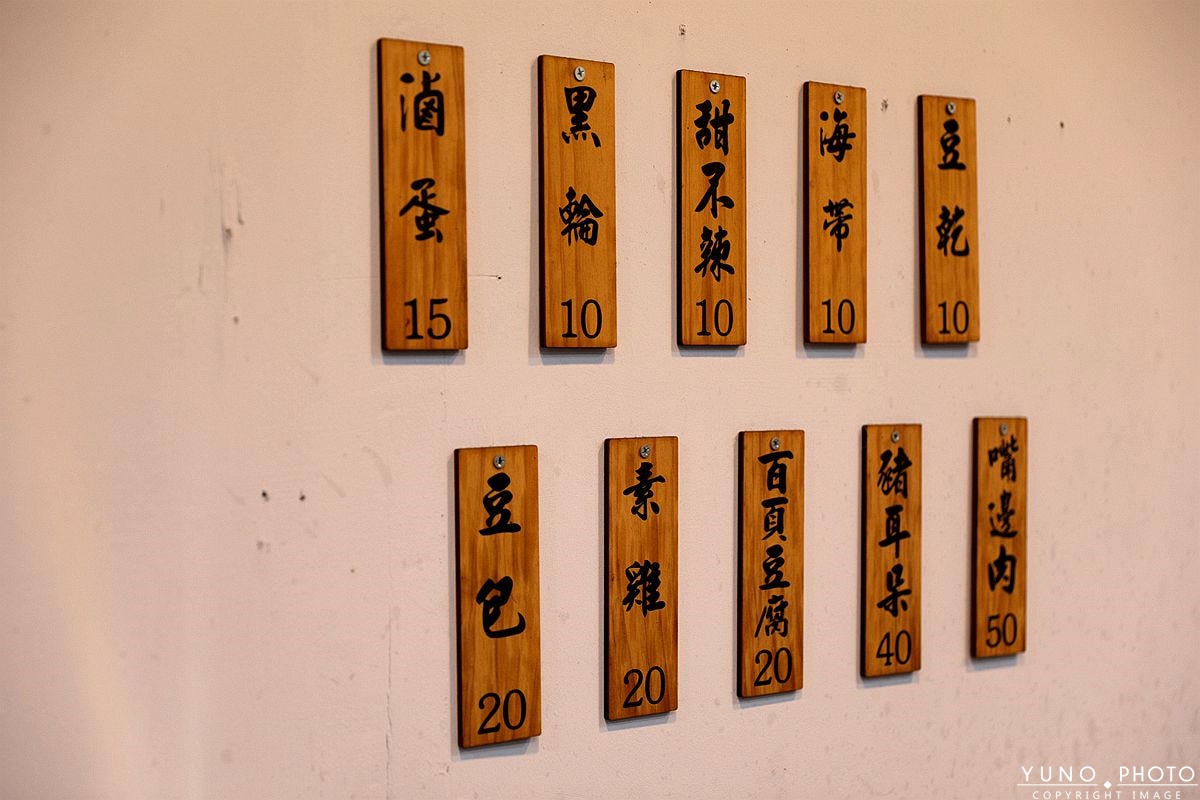 滷蛋
15
黑輪
10
甜不辣
10
海帶
10
豆乾
10
豆包
20
素雞
20
百頁豆腐
20
豬耳朵
40
嘴邊肉
50
YUNO PHOTO
COPYRIGHT IMAGE